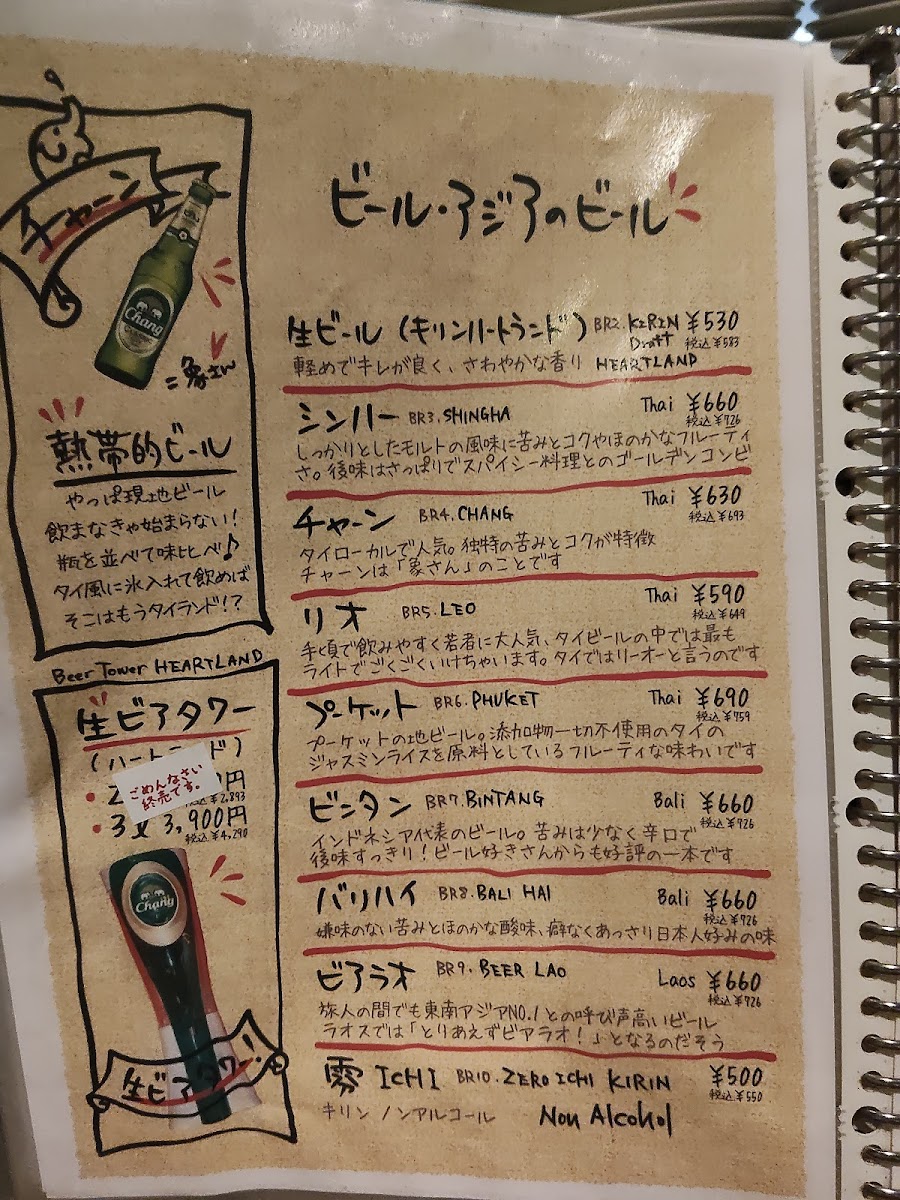 チャーン
Chang
=象さん
熱帯的ビール
やっぱ現地ビール
飲まなきゃ始まらない!
瓶を並べて味比べ♪
タイ風に氷入れて飲めば
そこはもうタイランド!?
Beer Tower HEARTLAND
生ビアタワー
ごめんなさい
終売です。
税込¥2,893
3ℓ 3,900円
税込¥4,290
Chang
生ビアタワー!
ビール・アジアのビール
生ビール (キリンハートランド) BR2.KIRIN Draft ¥530
税込¥583
軽めでキレが良く、さわやかな香り HEARTLAND
シンハー BR3.SINGHA Thai ¥660
税込¥726
しっかりとしたモルトの風味に苦みとコクやほのかなフルーティ
さ。後味はさっぱりでスパイシー料理とのゴールデンコンビ
チャーン BR4.CHANG Thai ¥630
税込¥693
タイローカルで人気。独特の苦みとコクが特徴
チャーンは「象さん」のことです
リオ BR5.LEO Thai ¥590
税込¥649
手頃で飲みやすく若者に大人気、タイビールの中では最も
ライトでごくごくいけちゃいます。タイではリーオーと言うのです
プーケット BR6.PHUKET Thai ¥690
税込¥759
プーケットの地ビール。添加物一切不使用のタイの
ジャスミンライスを原料としているフルーティな味わいです
ビンタン BR7.BINTANG Bali ¥660
税込¥726
インドネシア代表のビール。苦みは少なく辛口で
後味すっきり!ビール好きさんからも好評の一本です
バリハイ BR8.BALI HAI Bali ¥660
税込¥726
嫌味のない苦みとほのかな酸味、癖なくあっさり日本人好みの味
ビアラオ BR9.BEER LAO Laos ¥660
税込¥726
旅人の間でも東南アジアNO.1との呼び声高いビール
ラオスでは「とりあえずビアラオ!」となるのだそう
零 ICHI BR10.ZERO ICHI KIRIN ¥500
税込¥550
キリン ノンアルコール Non Alcohol